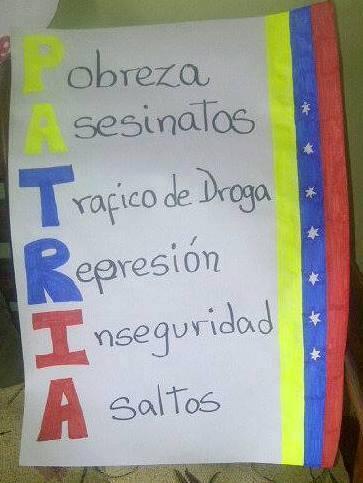 Pobreza
Asesinatos
Trafico de Droga
Represión
Inseguridad
Asaltos